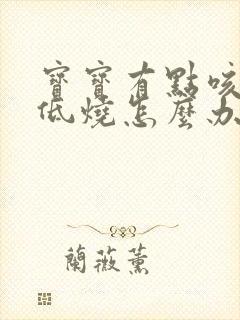 寶寶有點咳
低燒怎麼办
蘭薇薰